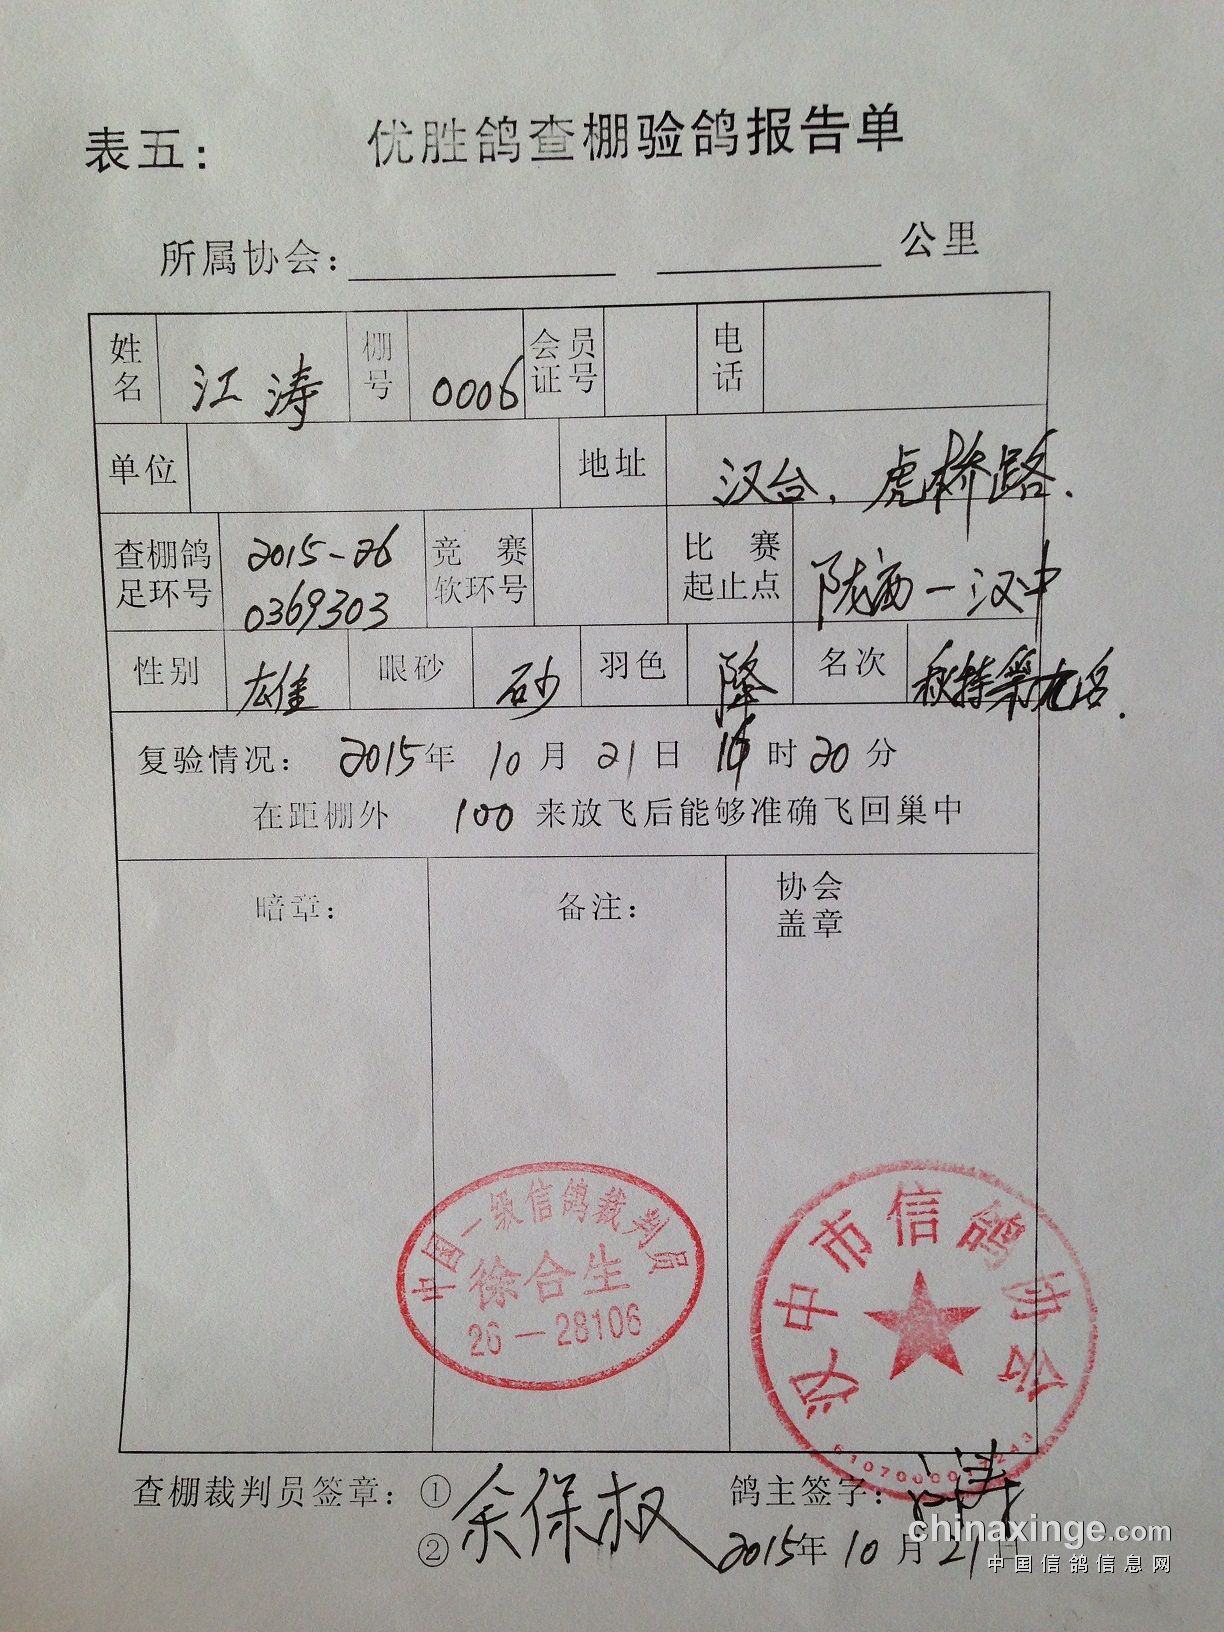 表五： 优胜鸽查棚验鸽报告单
所属协会： 公里
姓名 江涛 棚号 0006 会员证号 电话
单位 地址 汉台、虎桥路.
查棚鸽足环号 2015-26 0369303 竞赛软环号 比赛起止点 陇西—汉中
性别 雄 眼砂 砂 羽色 降 名次 秋特第九名.
复验情况： 2015年 10月 21日 时 20分
在距棚外 100 来放飞后能够准确飞回巢中
暗章： 备注： 协会盖章
中国一级信鸽裁判员
徐合生
26—28106
汉中市信鸽协会
查棚裁判员签章：① 余保权 鸽主签字： 江涛
② 2015年 10月 21日
chinaxinge.com
中国信鸽信息网